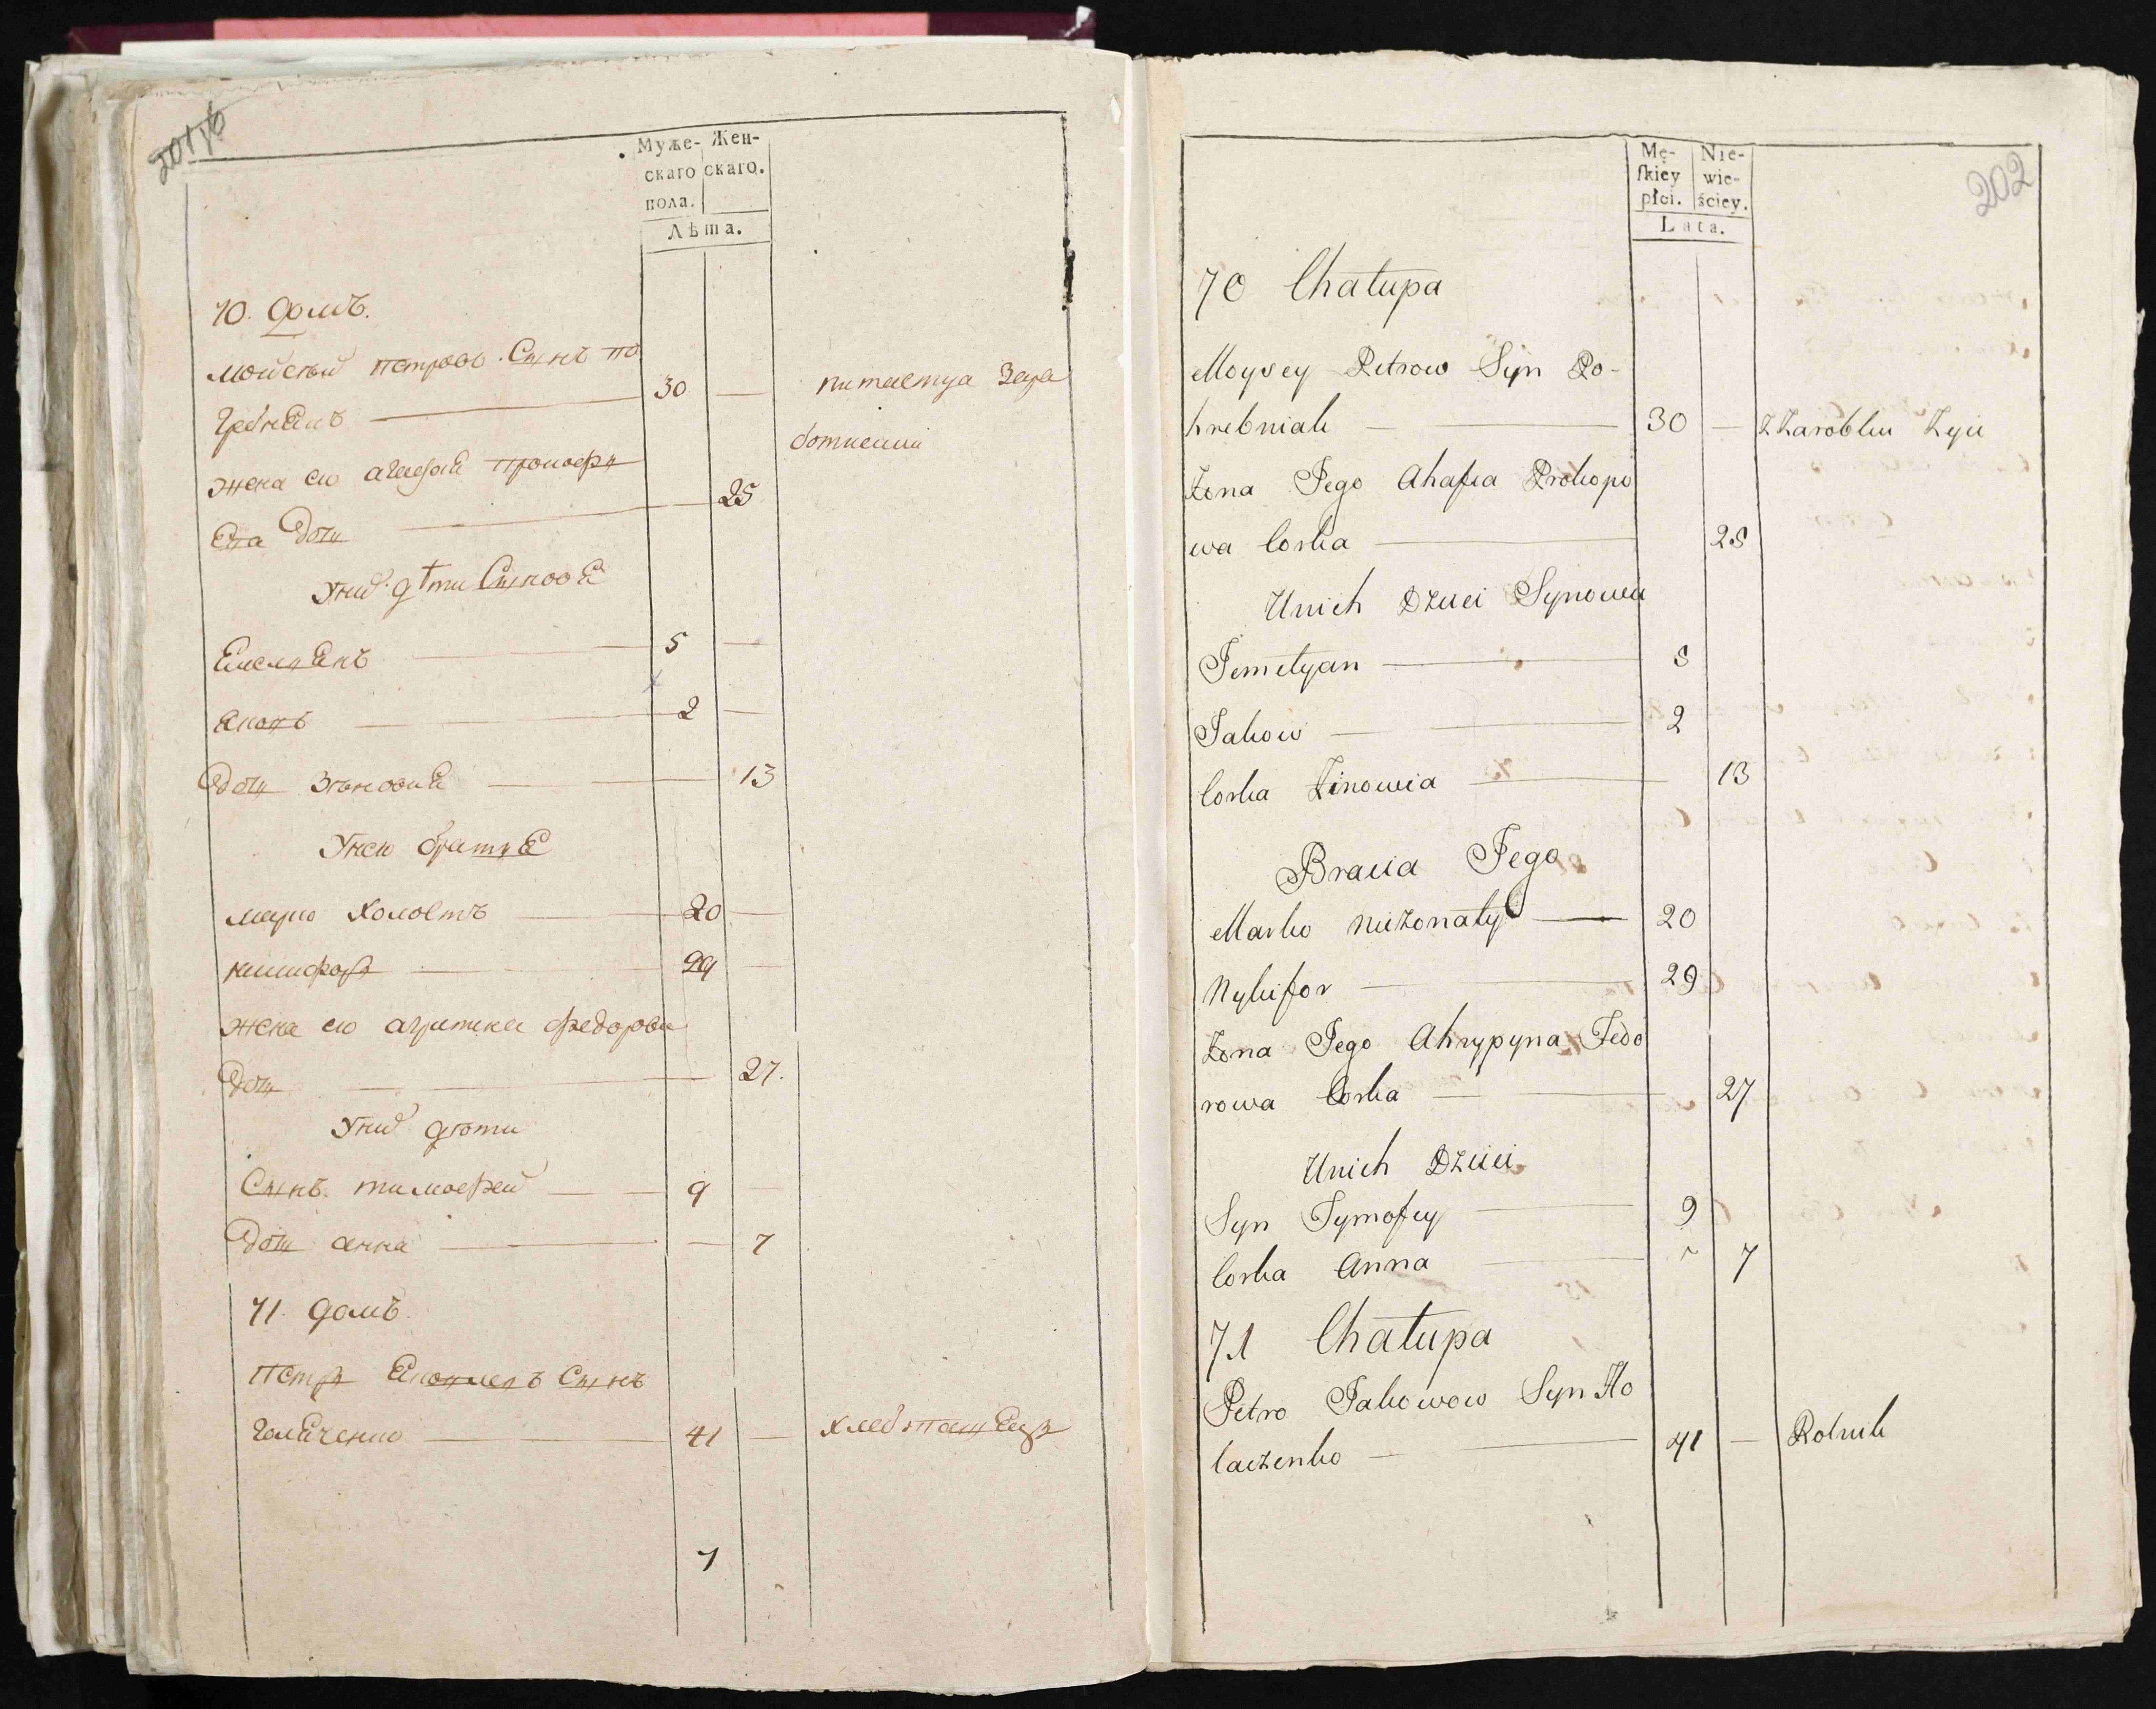 201об
Муже- Жен-
скаго скаго.
пола.
Лѣта.
70. Домъ.
Мойсей петровъ Сынъ по
гребнякъ — 30 — питается зара
ботками
жена его агафия прокофи
ева дочь — 25
У них дѣти Сыновя
Емелянъ — 5 —
яковъ — 2 —
дочь Зѣновия — 13
У него братья
марко холостъ — 20 —
никифоръ — 29 —
жена его агрипина федорова
дочь — 27.
У них дѣти
Сынъ тимофей — 9 —
дочь анна — 7
71. Домъ
петръ яковлевъ Сынъ
галяченко — 41 — хлебопашецъ
7
202
Mę- Nie-
ſkiey wie-
płci. ściey.
Lata.
70 Chałupa
Moysey Petrow Syn Po-
hrebniak — 30 — z Zarobku Żyie
Żona Jego Ahafia Prokopo
wa Corka — 25
Unich Dzieci Synowia
Jemelyan — 5
Jakow — 2
Corka Zinowia — 13
Bracia Jego
Marko nieżonaty — 20
Nykifor — 29
Żona Jego Ahrypyna Fedo
rowa Corka — 27
Unich Dzieci
Syn Tymofey — 9
Corka Anna — 7
71 Chałupa
Petro Jakowow Syn Ho
laczenko — 41 — Rolnik